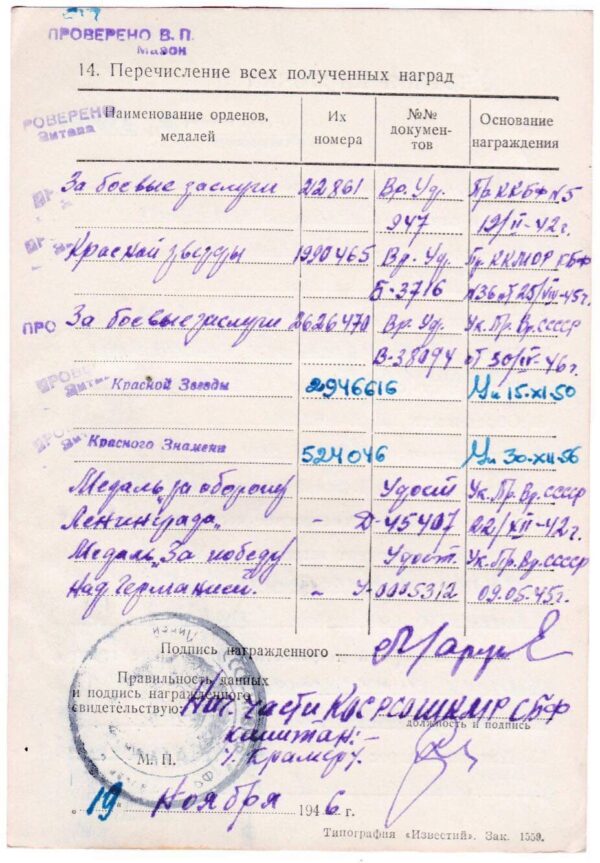 ПРОВЕРЕНО В. П.
Мазон
14. Перечисление всех полученных наград
РОВЕРЕНО
Зитева
Наименование орденов, медалей
Их номера
№№ докумен-тов
Основание награждения
За боевые заслуги 22861 Вр. Уд. Пр. ККБФ №5
947 19/II-42г.
Красной звезды 1990465 Вр. Уд. Пр. ККМОР КБФ
Б-3716 №36 от 25/VIII-45г.
ПРО За боевые заслуги 2626470 Вр. Уд. Ук. Пр. Вр. СССР
В-38094 от 30/IV-46г.
Красной Звезды 2946616 Ук 15-XI-50
Красного Знамени 524046 Ук 30-XII-56
Медаль „За оборону Удост Ук. Пр. Вр. СССР
Ленинграда" - Д-45407 22/XII-42г.
Медаль „За победу Удост. Ук. Пр. Вр. СССР
над Германией. - У-0005312 09.05.45г.
Подпись награжденного
Правильность данных
и подпись награжденного
свидетельствую: Нач. части
должность и подпись
капитан: -
/. Крамер /.
М. П.
„ 19 " Ноября 1946 г.
Типография «Известий». Зак. 1559.